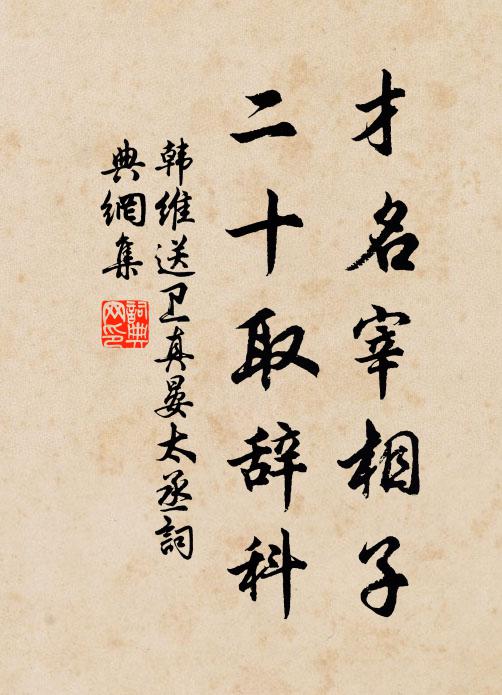 才名宰相子
二十取辞科
韩维送卫真晏太丞詞
典網集
詞典
网印